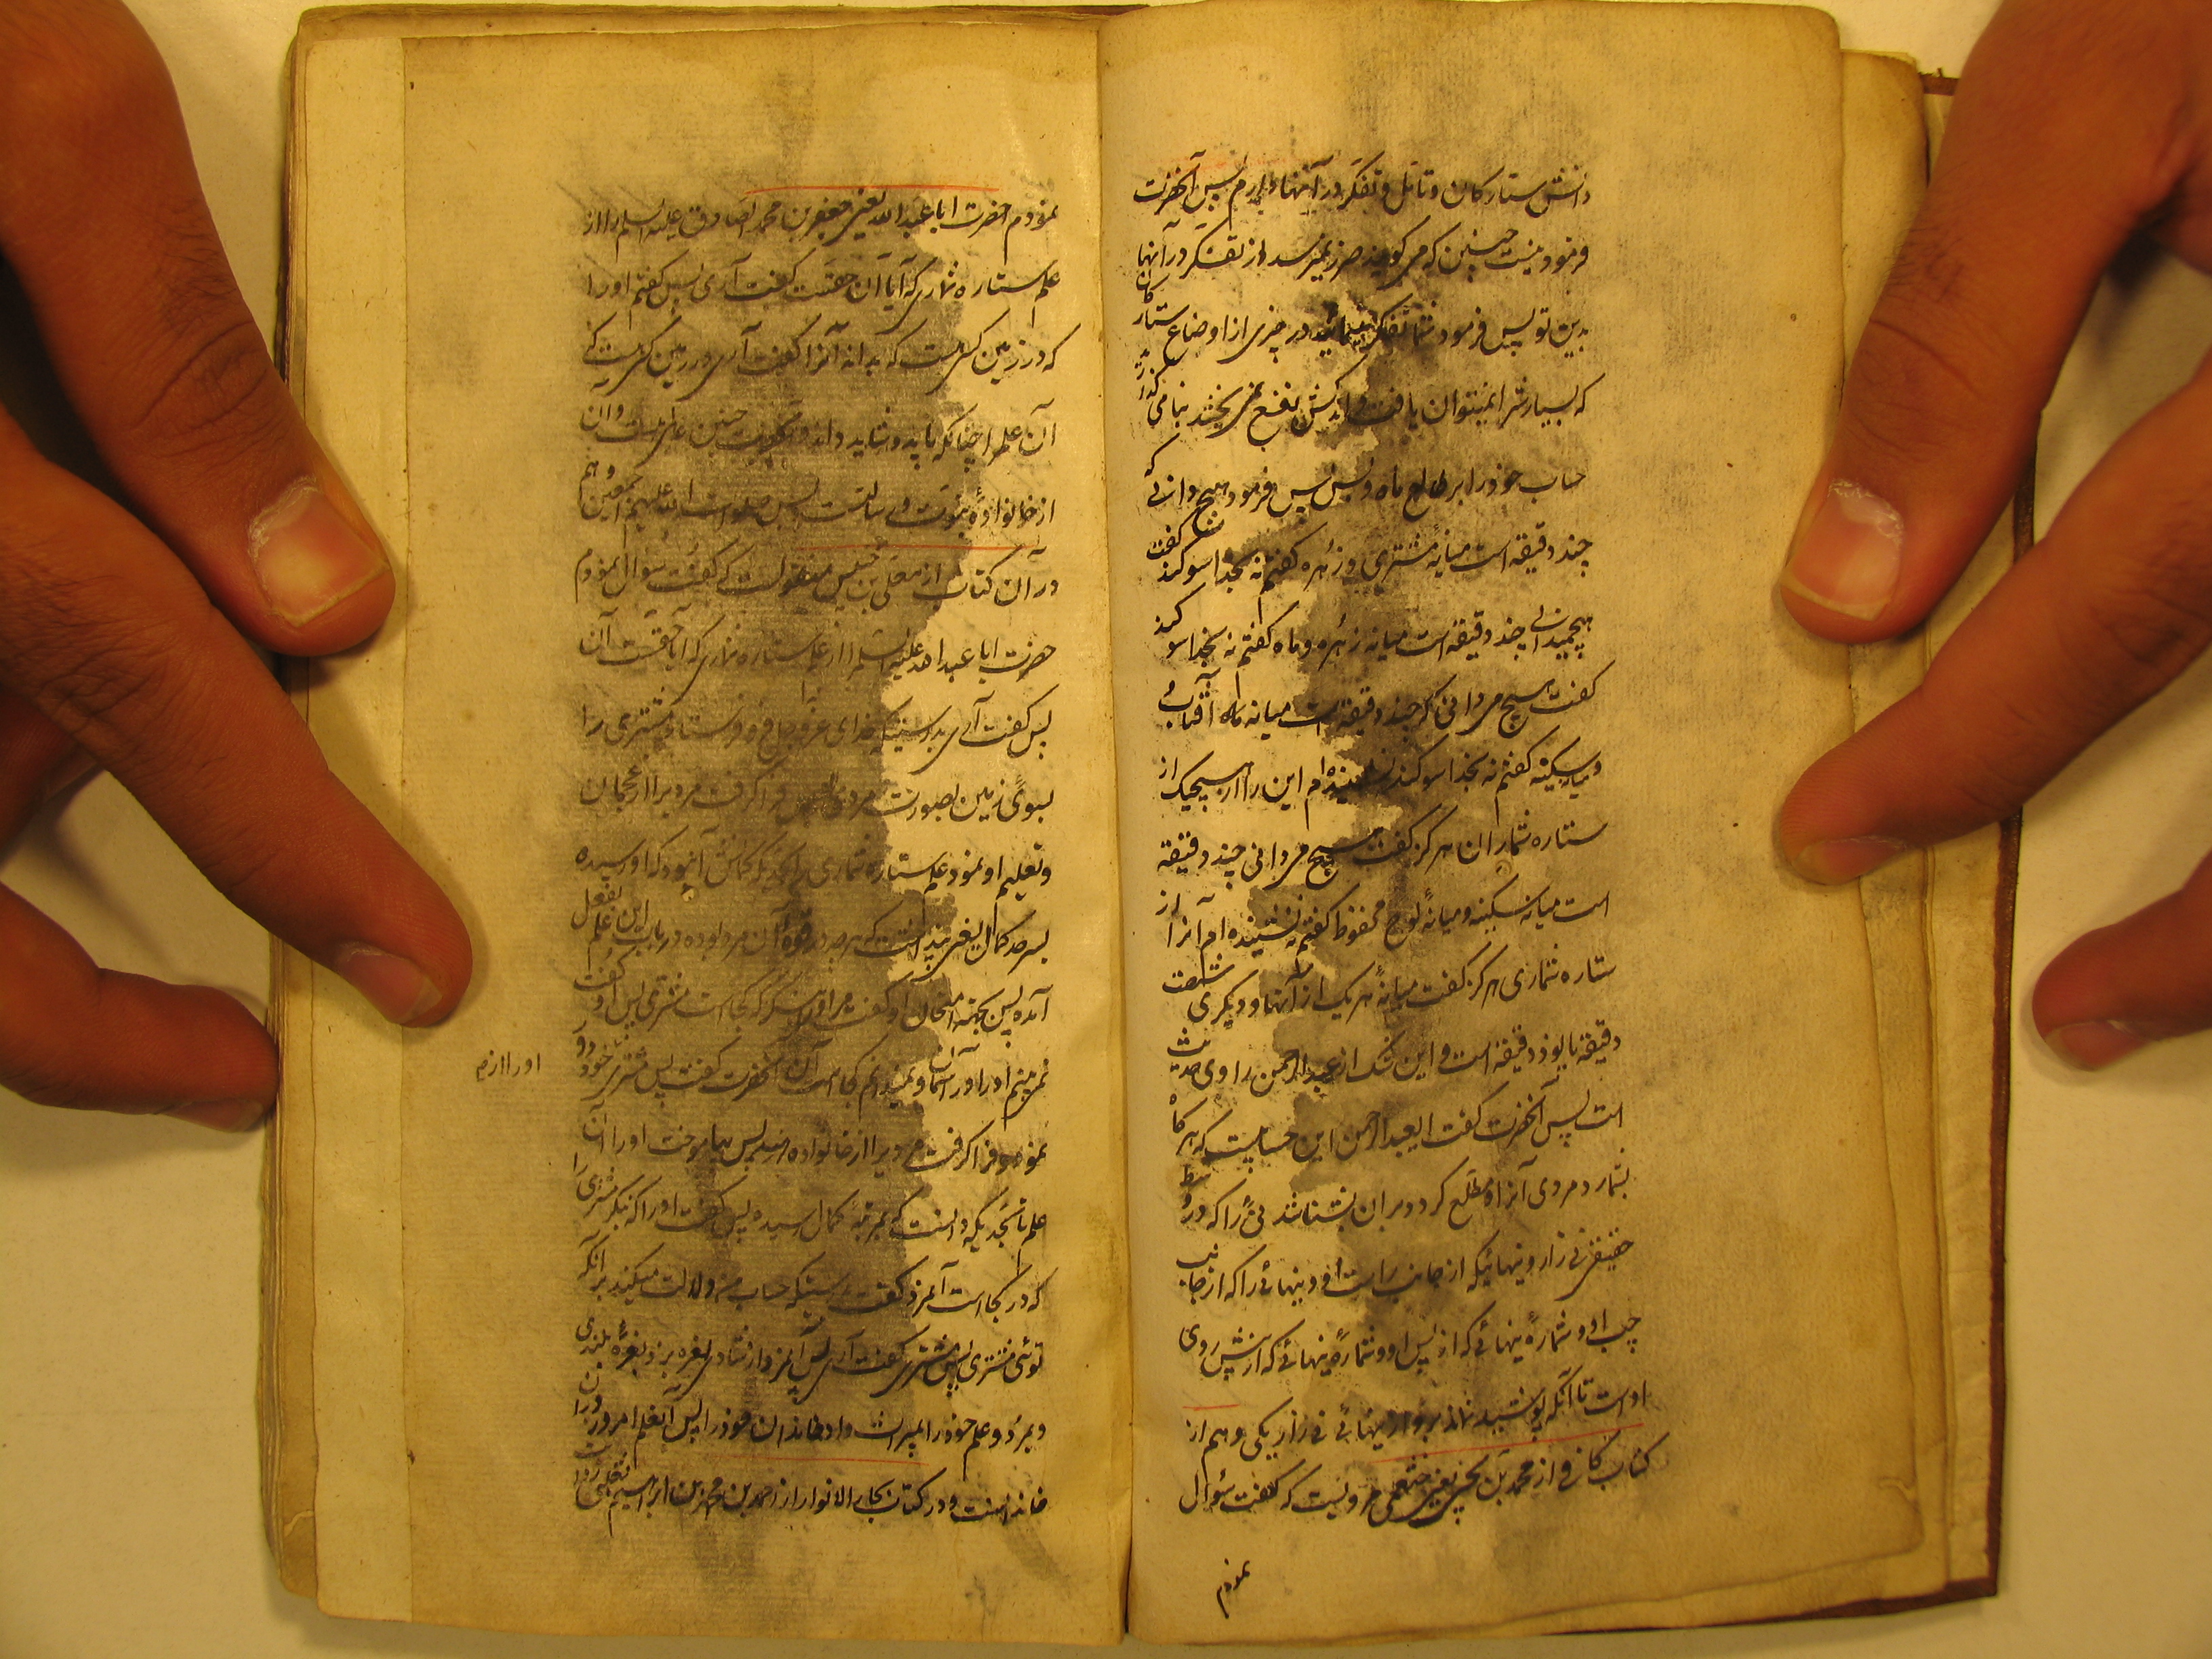 دانش ستارکان و تأمل و تفکر در آنها دارم پس آنحضرت
فرمود نیست چنین که میکویند ضرر نمیرسد از تفکر در آنها
بدین تو پس فرمود شما تفکر مینمائید در چیزی از اوضاع ستارکان
که بسیارش را نمیتوان یافت و اندکش نفع نمی بخشد بنا می کذارید
حساب خود را بر طالع ماه و بس پس فرمود هیچ دانی که
چند دقیقه است میانهٔ مشتری و زهره کفتم نه بخدا سوکند کفت
هیچمیدانی چند دقیقه است میانه زهره و ماه کفتم نه بخدا سوکند
کفت هیچ میدانی که چند دقیقه است میانه آفتاب
و میان سکینه کفتم نه بخدا سوکند نشنیده ام این را از هیچیک از
ستاره شماران هرکز کفت هیچ میدانی چند دقیقه
است میانه سکینه و میانهٔ لوح محفوظ کفتم نه نشنیده ام آنرا از
ستاره شماری هرکز کفت میانهٔ هریک از آنها و دیکری شصت
دقیقه یا نود دقیقه است و این شک از عبدالرحمن راوی حدیث
است پس آنحضرت کفت ایعبدالرحمن این حسابیست که هرکاه
بشمارد مردی آنرا و مطلع کردد بر آن بشناسد نی را که در وسط
حقیقی نی زار و نیهائیکه از جانب راست او و نیهائی را که از جانب
چپ او و شمارهٔ نیهائی که از پس او و شمارهٔ نیهائی که از پیش روی
اوست تا آنکه پوشیده نماند برو از نیهائی نی زار یکی و هم از
کتاب کافی از محمد بن یحیی یعنی خثعمی مرویست که کفت سؤال
نمودم
نمودم حضرت ابا عبدالله یعنی جعفر بن محمد الصادق علیه السلم را از
علم ستاره شماری که آیا آن حقست کفت آری پس کفتم او را
که در زمین کسی هست که بداند آنرا کفت آری در زمین کسی هست که
آن علم را چنانکه باید و شاید داند
از خانوادهٔ نبوت و رسالت پس صلوات الله علیهم اجمعین و هم
در آن کتاب از معلی بن خنیس منقولست که کفت سؤال نمودم
حضرت ابا عبدالله علیه السلم را از علم ستاره شماری که آیا حقست آن
پس کفت آری بدرستیکه خدای عز و جل فرو فرستاد مشتری را
بسوی زمین بصورت مردی پس فرا کرفت مردیرا از عجمان
و تعلیم او نمود علم ستاره شماری تا بحدیکه کمانش آن بود که او رسیده
بسر حد کمال یعنی پنداشت که هرچه در قوه آن مرد بوده در باب این علم بفعل
آمده پس بجهة امتحان او کفت مر او را که بنکر کجاست مشتری پس او کفت
نمی بینم او را در آسمان و نمیدانم کجاست آن آنحضرت کفت پس مشتری خود دور
اورا از زم
نمود و فرا کرفت مردیرا از خانواده هند پس بیاموخت اورا آن
علم تا بحدیکه دانست که بمرتبهٔ کمال رسیده پس کفت اورا که بنکر مشتری را
که در کجاست آنمرد کفت بدرستیکه حساب من دلالت میکند بر آنکه
توئی مشتری پس مشتری کفت آری پس آنمرد از شادی نعره بزد نعرهٔ بلندی
و بمرد و علم خود را بمیراث داد خاندان خود را پس آنعلم امروز در آن
خاندانست و در کتاب بحار الانوار از احمد بن محمد بن ابراهیم ثعلبی روایت